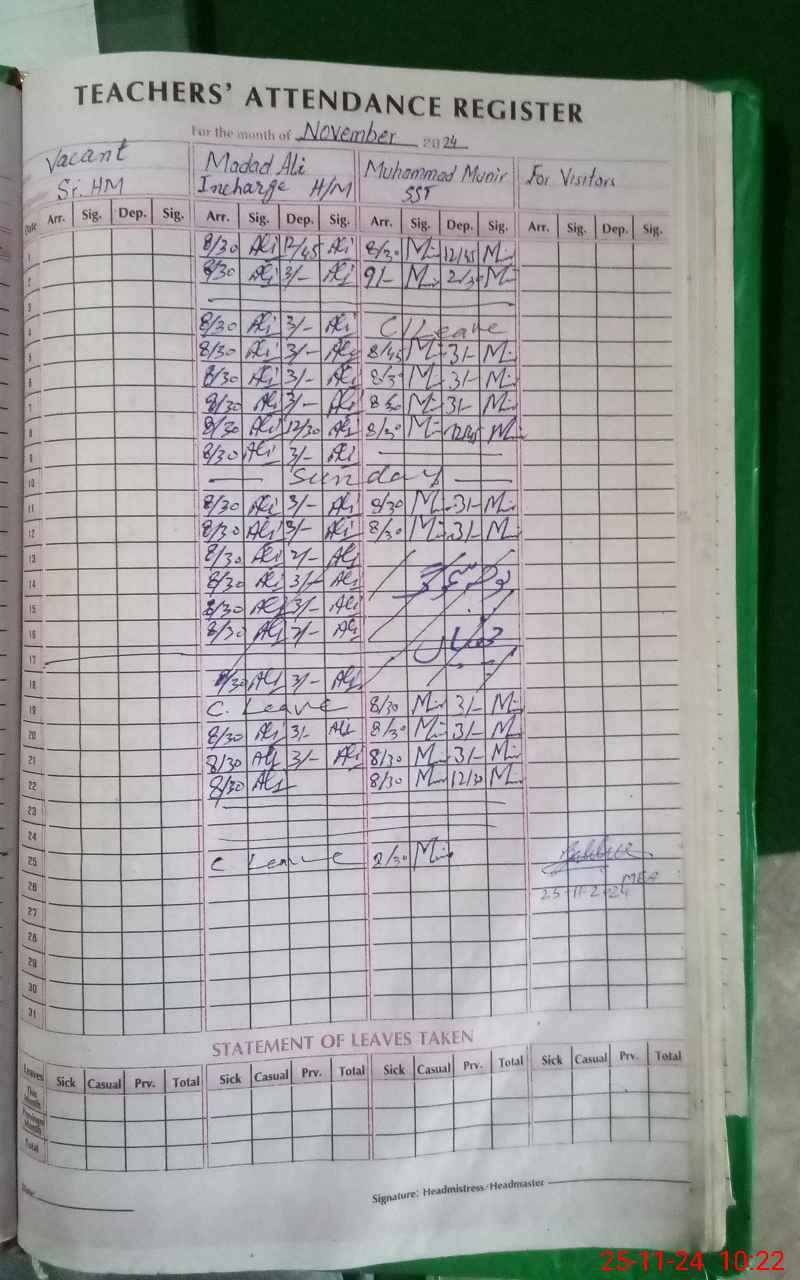 TEACHERS' ATTENDANCE REGISTER
For the month of November 2024
Vacant Sr. HM
Madad Ali Incharge H/M
Muhammad Munir SST
For Visitors
Date Arr. Sig. Dep. Sig. Arr. Sig. Dep. Sig. Arr. Sig. Dep. Sig. Arr. Sig. Dep. Sig.
1 8/30 Ali 12/45 Ali 8/30 M 12/45 M
2 8/30 Ali 3/- Ali 9/- M 2/30 M
3
4 8/30 Ali 3/- Ali C/Leave
5 8/30 Ali 3/- Ali 8/45 M 3/- M
6 8/30 Ali 3/- Ali 8/30 M 3/- M
7 8/30 Ali 3/- Ali 8/30 M 3/- M
8 8/30 Ali 12/30 Ali 8/30 M 12/45 M
9 8/30 Ali 3/- Ali
10 Sunday
11 8/30 Ali 3/- Ali 8/30 M 3/- M
12 8/30 Ali 3/- Ali 8/30 M 3/- M
13 8/30 Ali Ali
14 8/30 Ali 3/- Ali
15 8/30 Ali 3/- Ali
16 8/30 Ali Ali
17
18 8/30 Ali 3/- Ali
19 C. Leave 8/30 M 3/- M
20 8/30 Ali 3/- Ali 8/30 M 3/- M
21 8/30 Ali 3/- Ali 8/30 M 3/- M
22 8/30 Ali 8/30 M 12/30 M
23
24
25 C Leave 8/30 M
26 MEA
27 25-11-2024
28
29
30
31
STATEMENT OF LEAVES TAKEN
Leaves Sick Casual Prv. Total Sick Casual Prv. Total Sick Casual Prv. Total Sick Casual Prv. Total
This Month
Previous Month
Total
Signature: Headmistress/Headmaster
25-11-24 10:22